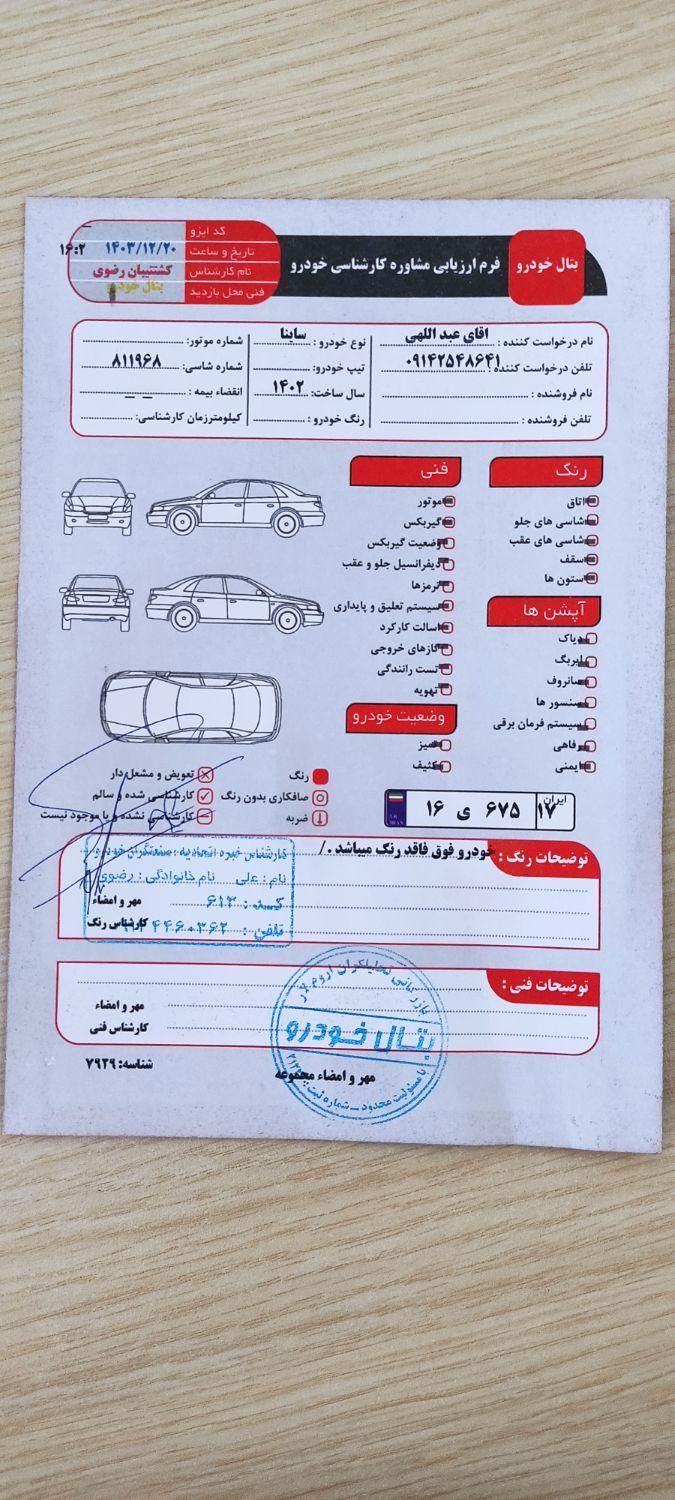 بتال خودرو
فرم ارزیابی مشاوره کارشناسی خودرو
کد ایزو
تاریخ و ساعت ۱۴۰۳/۱۲/۲۰ ۱۶:۲
نام کارشناس کشتیبان رضوی
فنی محل بازدید بتال خودرو
نام درخواست کننده : اقای عبد اللهی
تلفن درخواست کننده : ۰۹۱۴۲۵۴۸۶۴۱
نام فروشنده :
تلفن فروشنده :
نوع خودرو : ساینا
تیپ خودرو:
سال ساخت: ۱۴۰۲
رنگ خودرو :
شماره موتور:
شماره شاسی: ۸۱۱۹۶۸
انقضاء بیمه : _ _
کیلومترزمان کارشناسی:
رنگ
اتاق
شاسی های جلو
شاسی های عقب
سقف
ستون ها
آپشن ها
دیاک
ایربگ
سانروف
سنسور ها
سیستم فرمان برقی
رفاهی
ایمنی
فنی
موتور
گیربکس
وضعیت گیربکس
دیفرانسیل جلو و عقب
ترمزها
سیستم تعلیق و پایداری
اسالت کارکرد
گازهای خروجی
تست رانندگی
تهویه
وضعیت خودرو
تمیز
کثیف
رنگ
صافکاری بدون رنگ
ضربه
تعویض و مشعل دار
کارشناسی شده و سالم
کارشناسی نشده و یا موجود نیست
۱۶ ی ۶۷۵ ایران ۱۷
I.R.
IRAN
توضیحات رنگ :
خودرو فوق فاقد رنگ میباشد ./
کارشناس خبره اتحادیه صنعتگران خودرو
نام : علی نام خانوادگی : رضوی
کد : ۶۱۳
تلفن :
مهر و امضاء
کارشناس رنگ
توضیحات فنی :
مهر و امضاء
کارشناس فنی
بتال خودرو
با مسئولیت محدود - شماره ثبت
مهر و امضاء مجموعه
شناسه: ۷۹۲۹